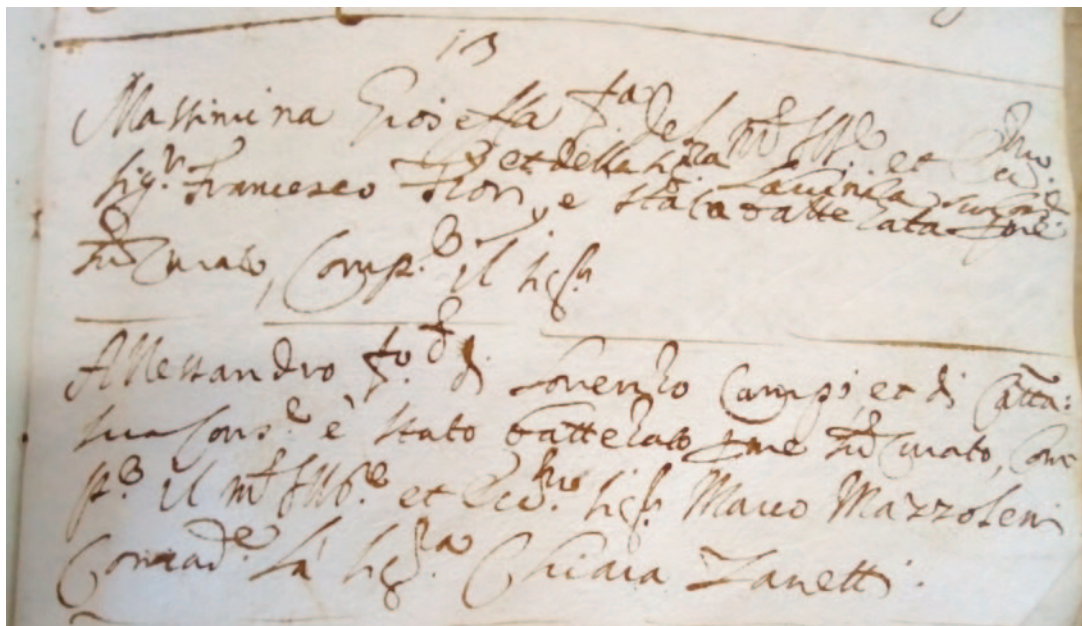 13
Massimina Gioseffa f.a del m.to Ill.e et Ecc.mo
et della sig.ra Lavinia sua cons.e
Sig.r Francesco Fiori, e stata battezata p me
Curato, Comp.e il sig.r
Allessandro fo. di Lorenzo Campi, et di Catta:
sua Cons.e è stato battezato p me Curato, Com
p.e il m.to Ill.e et Ecc.mo sig.r Marco Mazzoleni
Comad.e la sig.ra Chiara Zanetti.